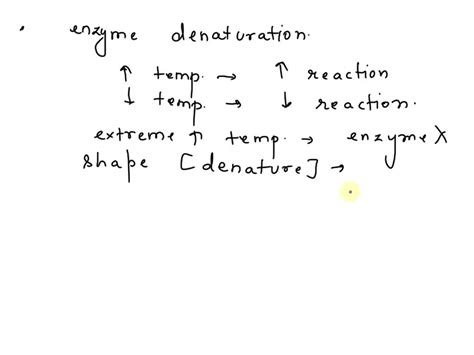 enzyme denaturation.
↑ temp. → ↑ reaction
↓ temp. → ↓ reaction.
extreme ↑ temp. → enzyme X
shape [denature] →